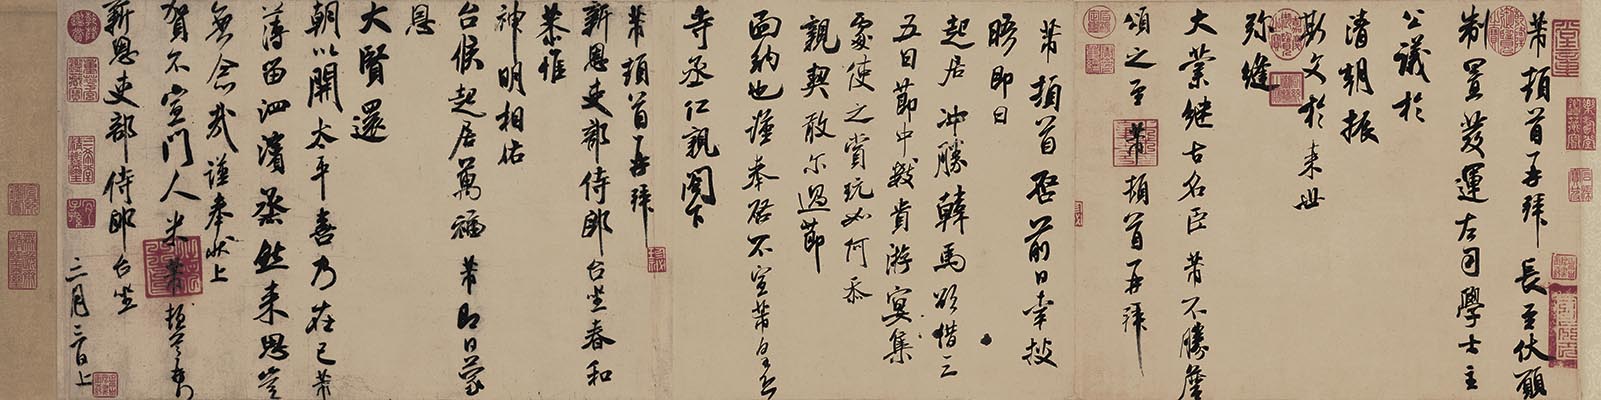 芾頓首再拜長至伏願
制置發運左司學士主
公議於
清朝振
斯文於來世
彌縫
大業繼古名臣芾不勝詹
頌之至芾頓首再拜
芾頓首啓前日幸披
晤即日
起居冲勝韓馬欲借三
五日節中數貴游宴集
處使之賞玩如何忝
親契敢尔過節
面納也謹奉啓不宣芾頓首
寺丞仁親閣下
芾頓首再拜
新恩吏部侍郎台坐春和
恭惟
神明相佑
台候起居萬福芾即日蒙
恩
大賢還
朝以開太平喜乃在已芾
薄留泗濱蒸然來思豈
無念哉謹奉狀上
賀不宣門人米芾頓首
新恩吏部侍郎台坐
三月二日上